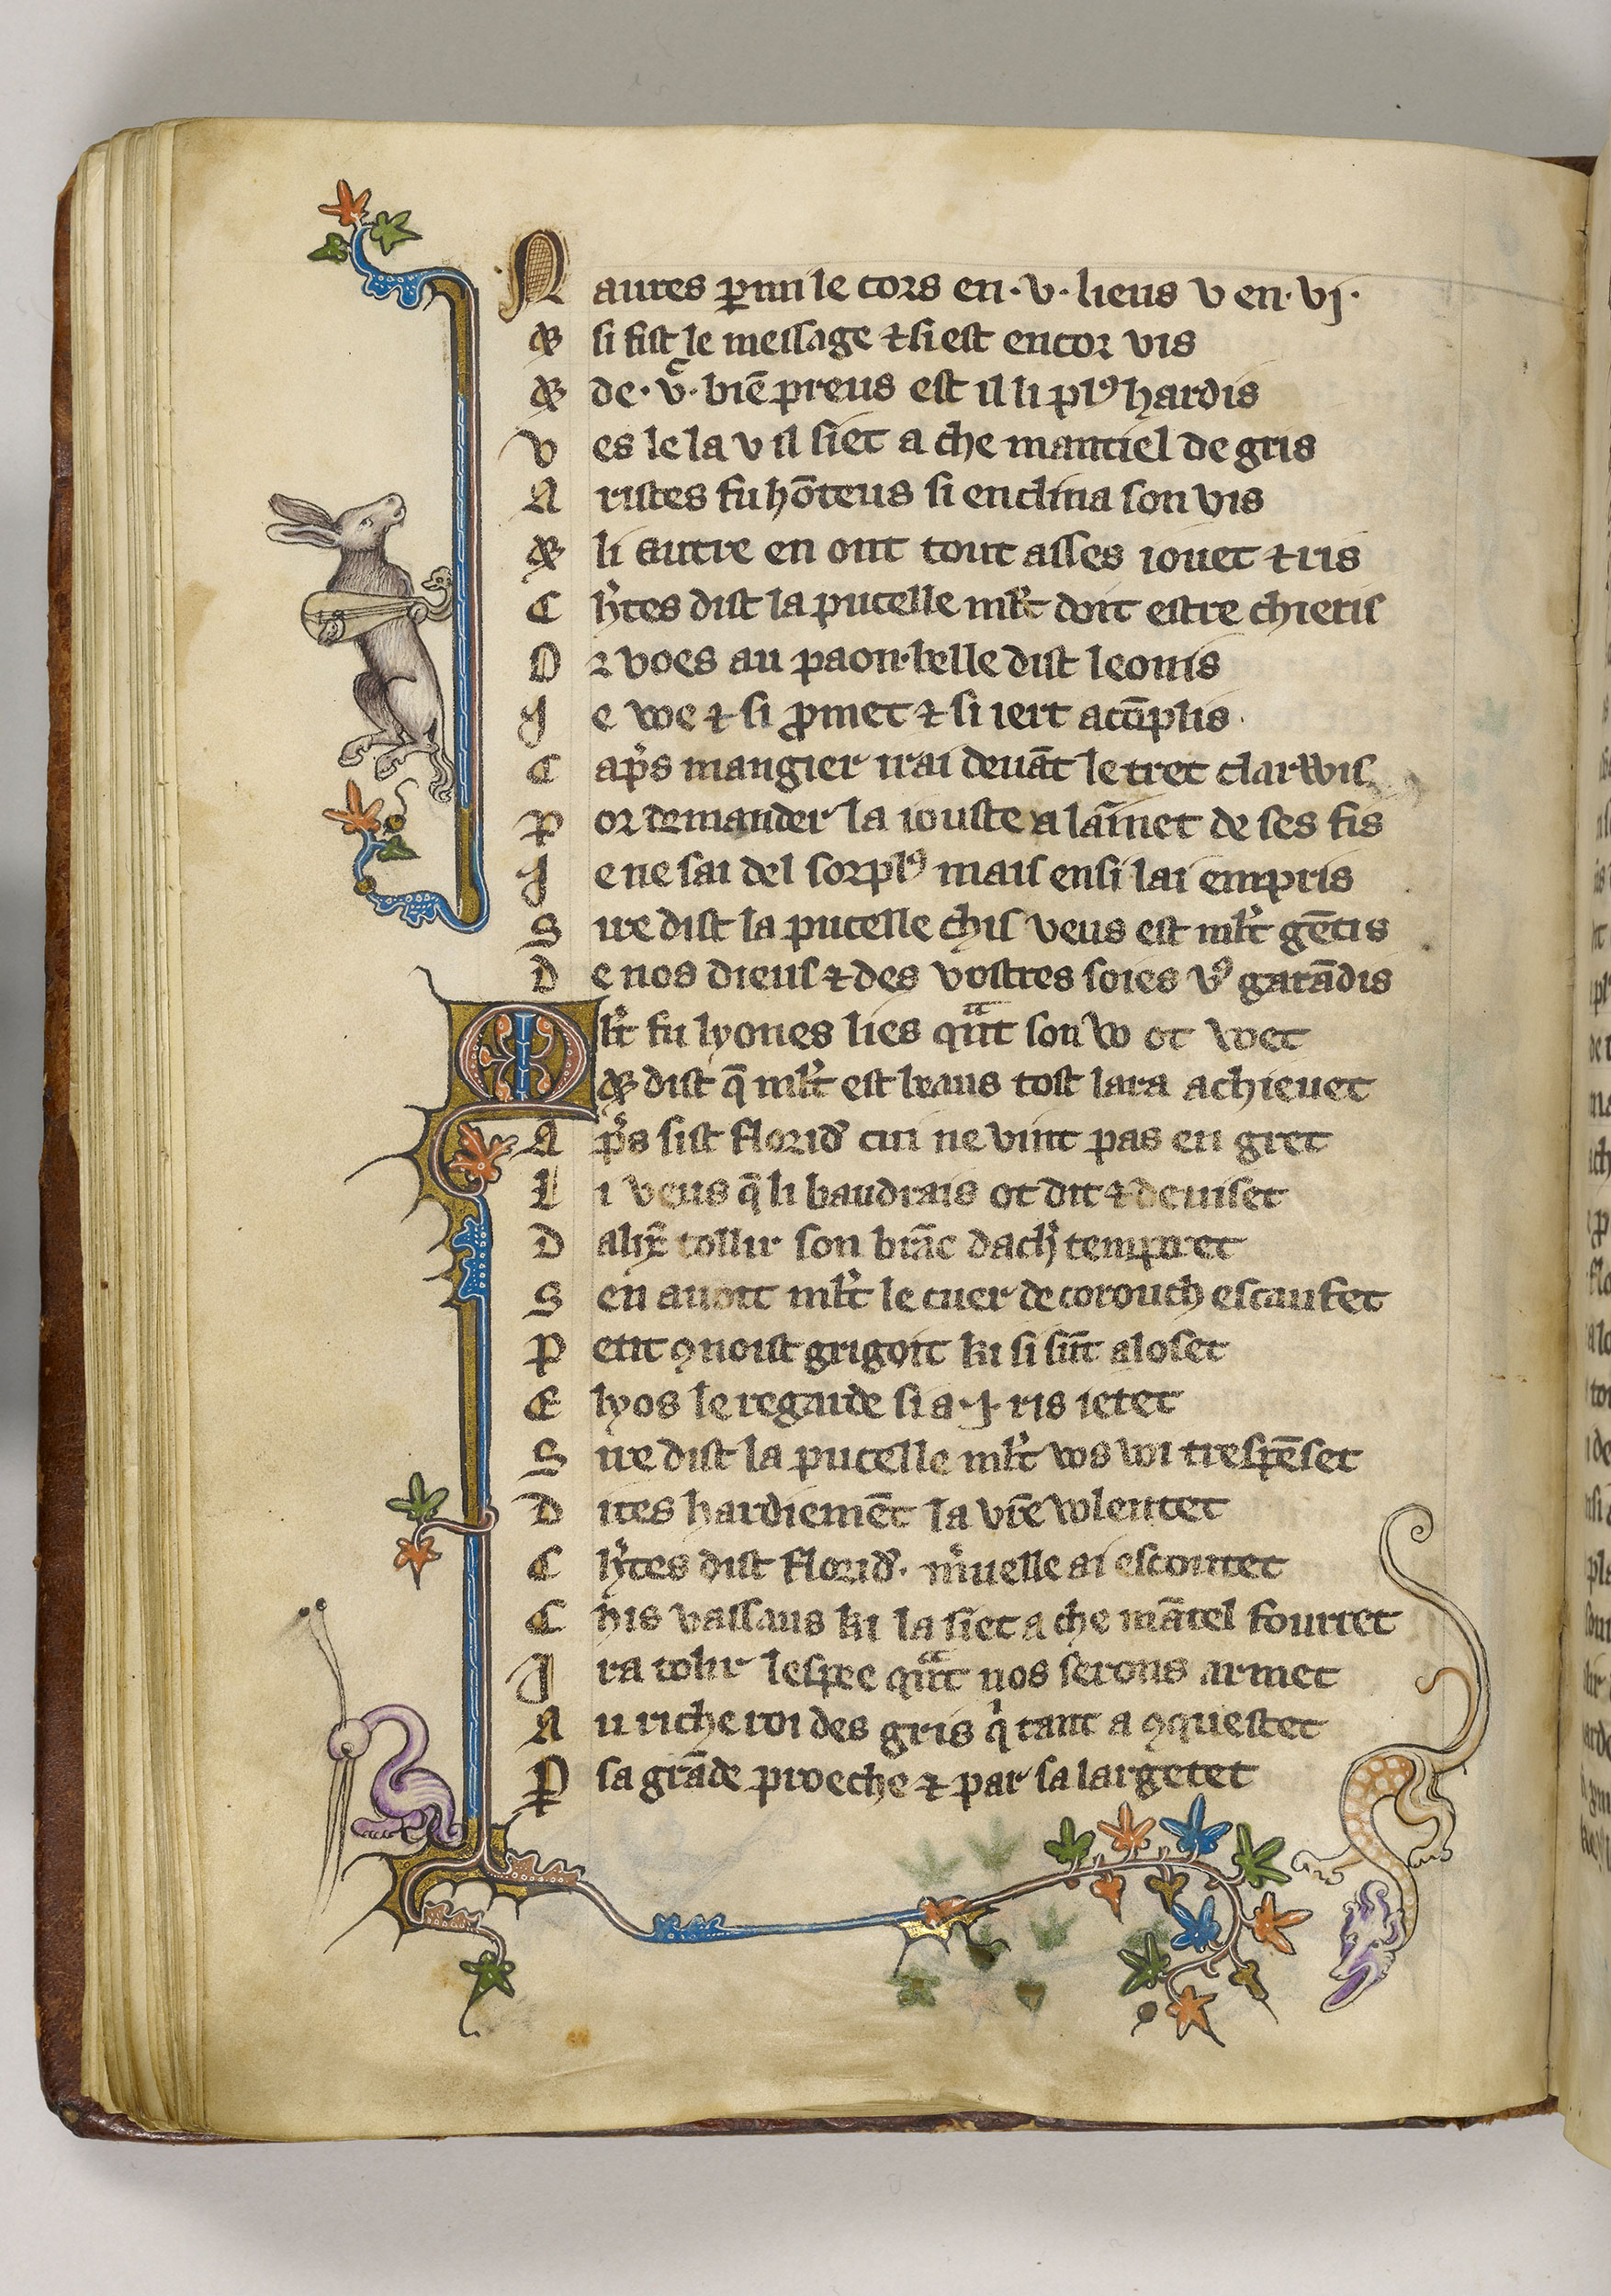 Naures parmi le cors en · v · lieus v en · vj ·
Et si fist le message ⁊ si est encor vis
Et de · v͑ · biē preus est il li plꝰ hardis
Ves le la v il siet a che mantiel de gris
Aristes fu hōteus si enclina son vis
Et li autre en ont tout asses iouet ⁊ ris
Ch'tes dist la pucelle ml't doit estre chieris
Or voes au paon · belle dist leonis
Je voe ⁊ si ꝓmet ⁊ si iert acōplis ·
C ap's mangier irai deuāt le tret clarvvis
Por demander la iouste a lainnet de ses fis
Je ne sai del sorplꝰ mais ensi lai empris
Sire dist la pucelle chis veus est ml't gētis
De nos dieus ⁊ des vostres soies vꝰ garādis
Ml't fu lyones lies qᵃnt son vo ot voet
Et dist q̄ ml't est biaus tost lara achieuet
Ap's sist florid' cui ne vint pas en gret
Li veus q̄ li baudrais ot dit ⁊ deuiset
D alix' tollir son brāc dach' tempret
Sen auoit ml't le cuer de corouch escaufet
Petit ꝯnoist grigoit ki si sūt aloset
Elyos le regarde si a · j · ris ietet
Sire dist la pucelle ml't vos voi trespēset
Dites hardiemēt la vr̄e volentet
Ch'tes dist florid' · m'uelle ai escoutet
Chis vassaus ki la siet a che mātel fourret
Jra tolir lespee qᵃnt nos serons armet
Au riche roi des gris q' tant a ꝯquestet
P sa grāde proeche ⁊ par sa largetet